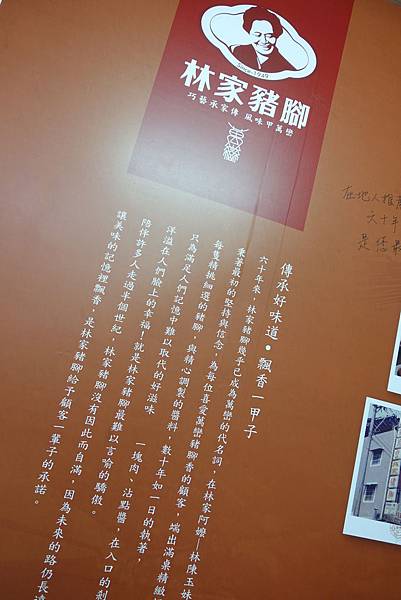 Since 1949
林家豬腳
巧藝承家傳 風味甲萬巒
傳承好味道•飄香一甲子
六十年來，林家豬腳幾乎已成為萬巒的代名詞，在林家阿嬤—林陳玉妹
秉著最初的堅持與信念，為每位喜愛萬巒豬腳香的顧客，端出滿桌精緻
每隻精挑細選的豬腳，與精心調製的醬料，數十年如一日的執著，
只為滿足人們記憶中難以取代的好滋味 一塊肉、沾點醬，在入口的剎
洋溢在人們臉上的幸福！就是林家豬腳最難以言喻的驕傲。
陪伴許多人走過半個世紀，林家豬腳沒有因此而自滿，因為未來的路仍長遠
讓美味的記憶裡飄香，是林家豬腳給予顧客一輩子的承諾。
在地人推薦
六十年
是您最